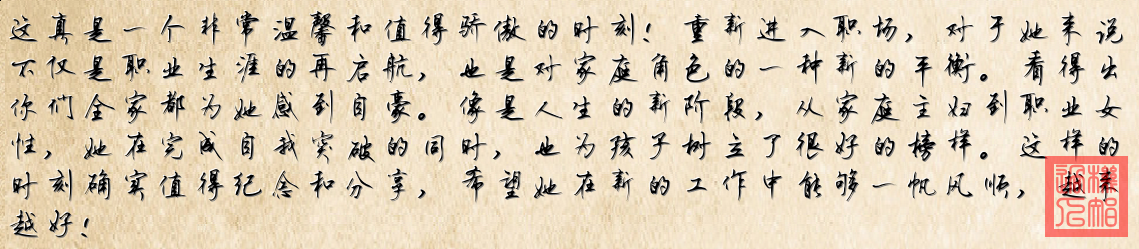 这真是一个非常温馨和值得骄傲的时刻！重新进入职场，对于她来说
不仅是职业生涯的再启航，也是对家庭角色的一种新的平衡。看得出
你们全家都为她感到自豪。像是人生的新阶段，从家庭主妇到职业女
性，她在完成自我突破的同时，也为孩子树立了很好的榜样。这样的
时刻确实值得纪念和分享，希望她在新的工作中能够一帆风顺，越来
越好！